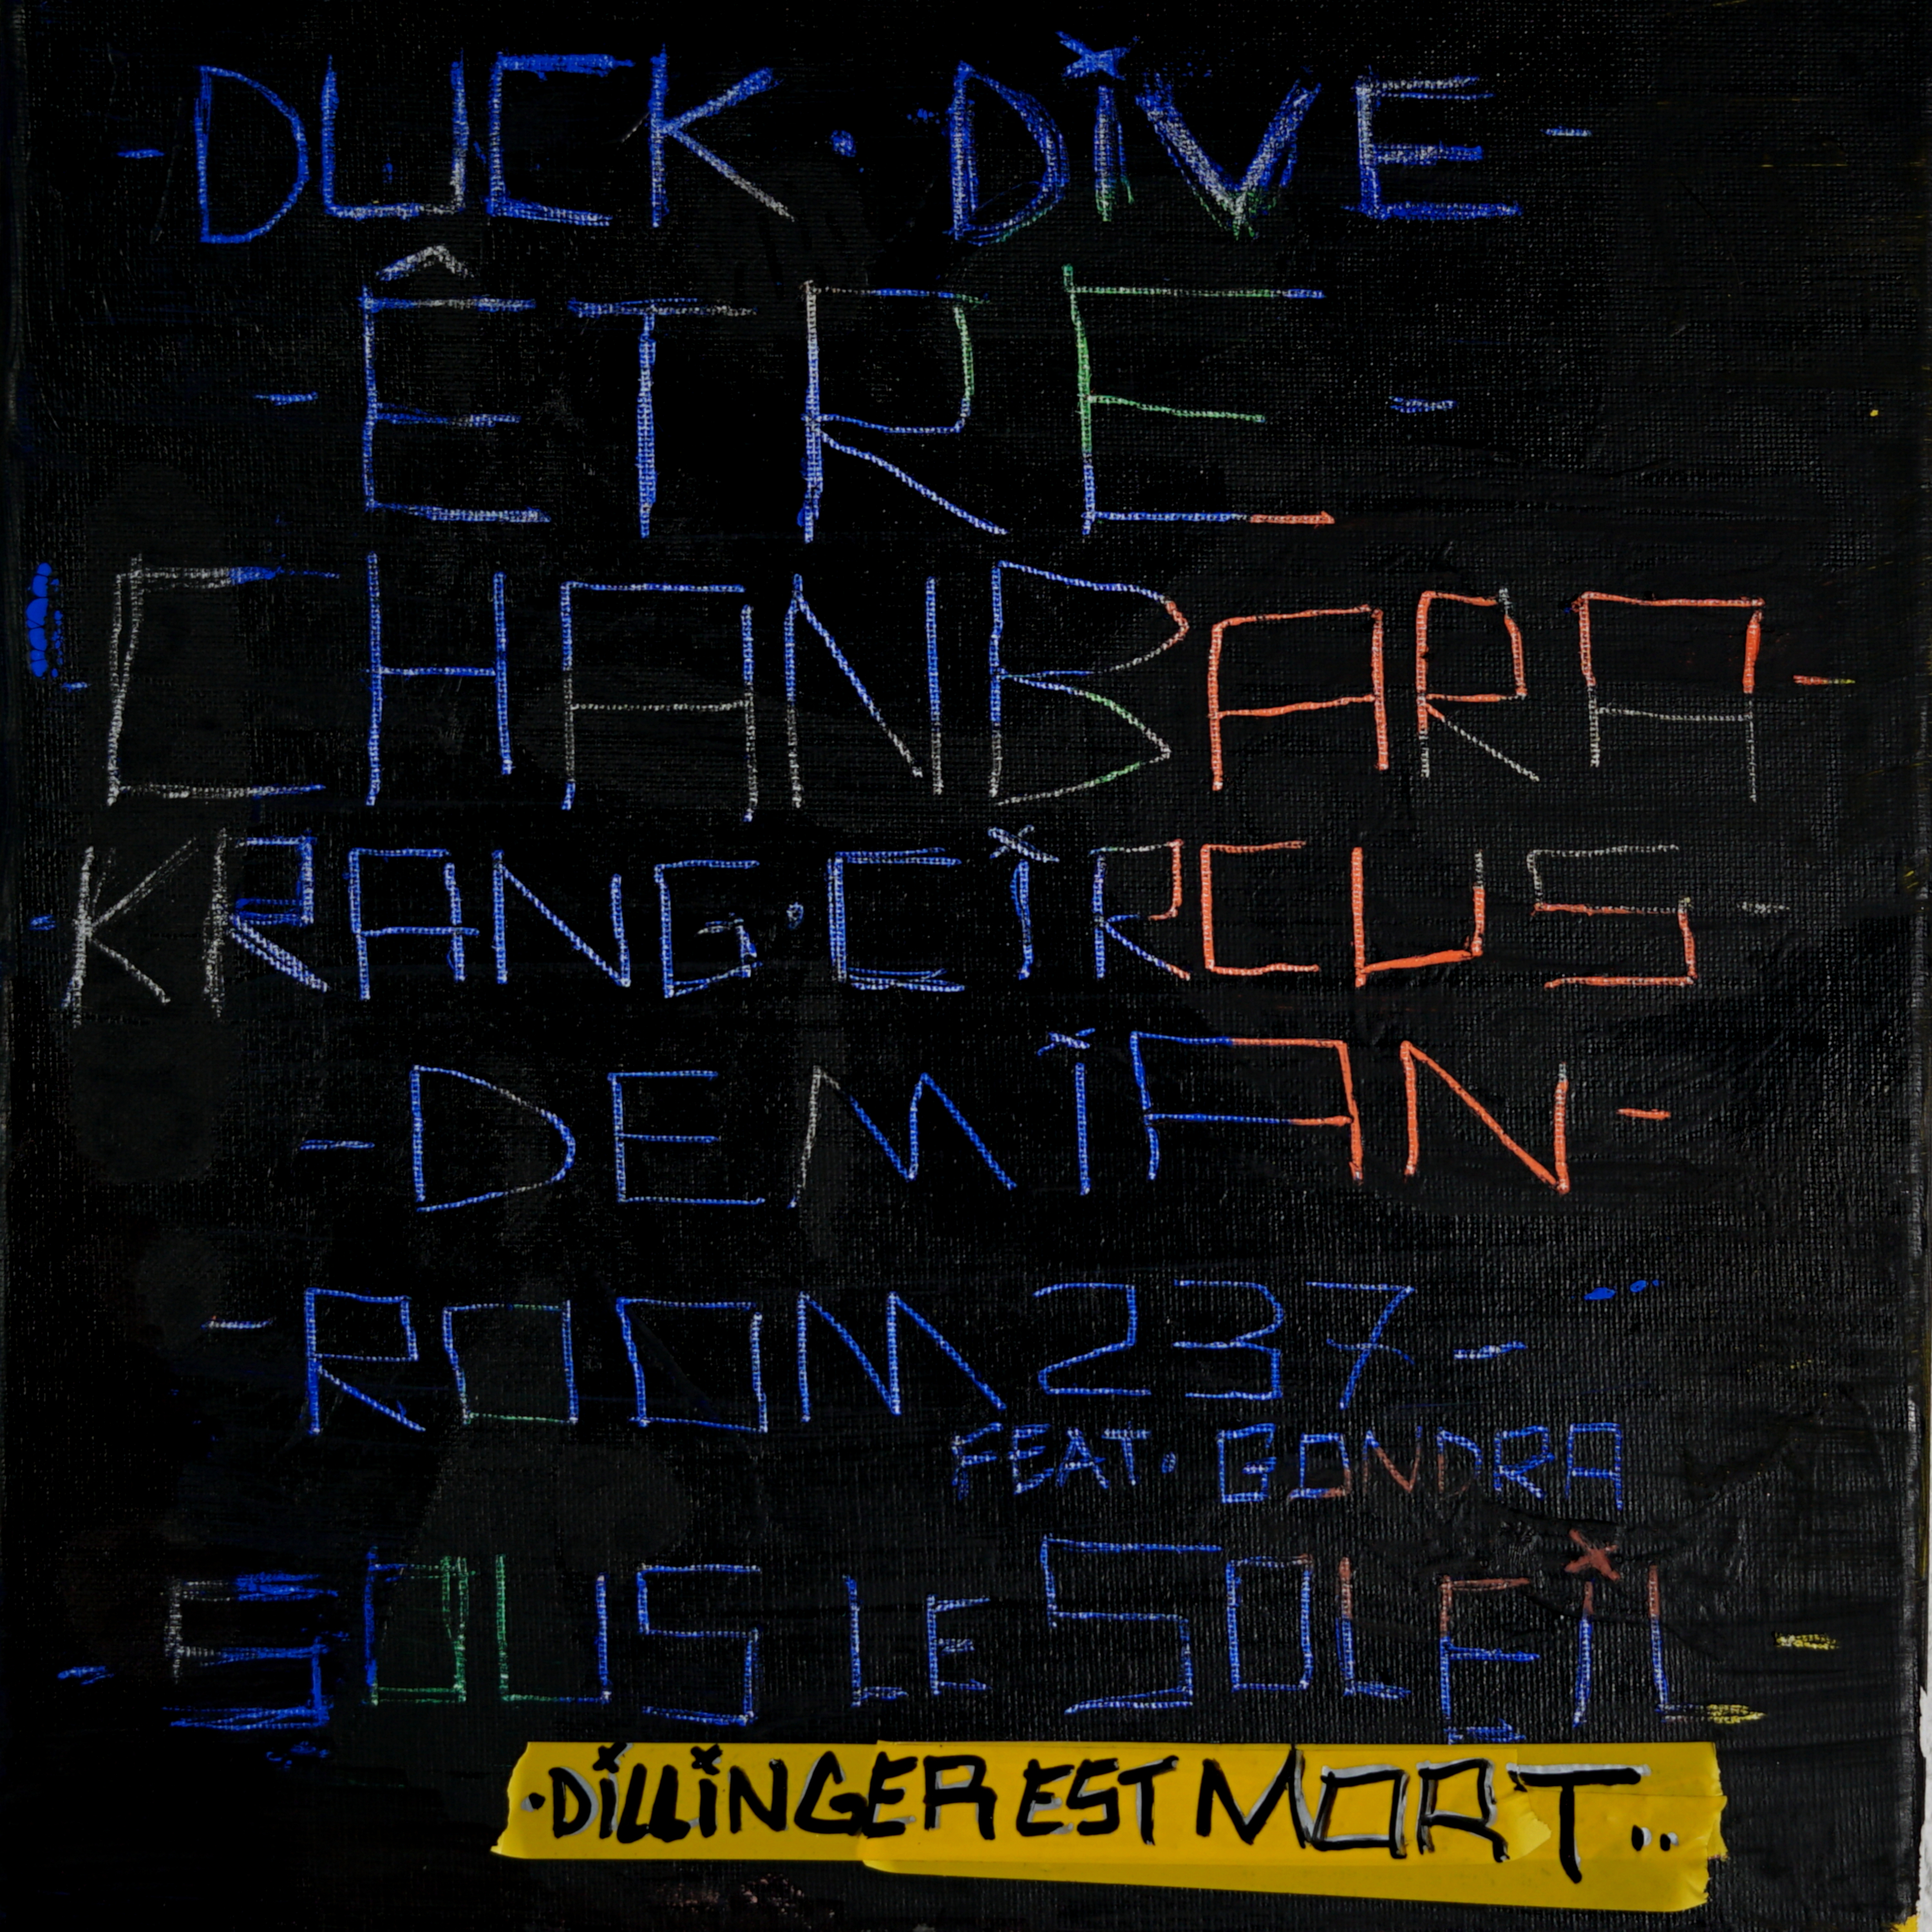 -DUCK·DiVE-
-ÊTRE-
-CHANBARA-
-KRANG·CiRCUS-
-DEMiAN-
-ROOM 237-
FEAT. GONDRA
-SOUS LE SOLEiL-
·DiLLiNGER EST MORT..